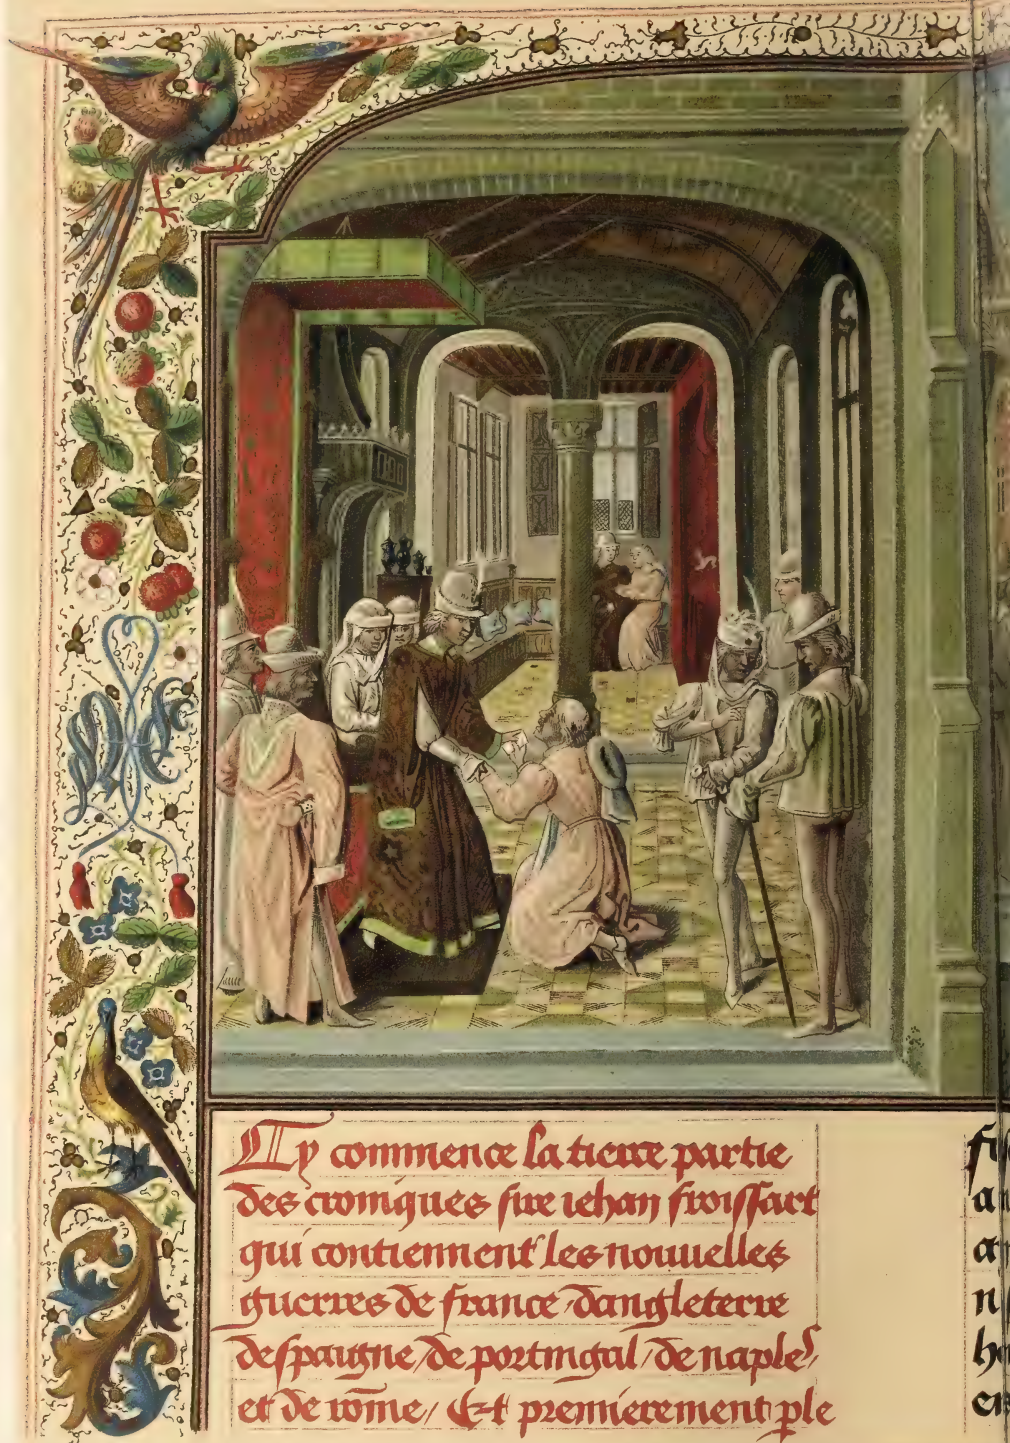 Cy commence la tierce partie
des croniques sire iehan froissart
qui contiennent les nouuelles
guerres de france / dangleterre
despaigne / de portingal / de naples /
et de rōme / Et premierement ple